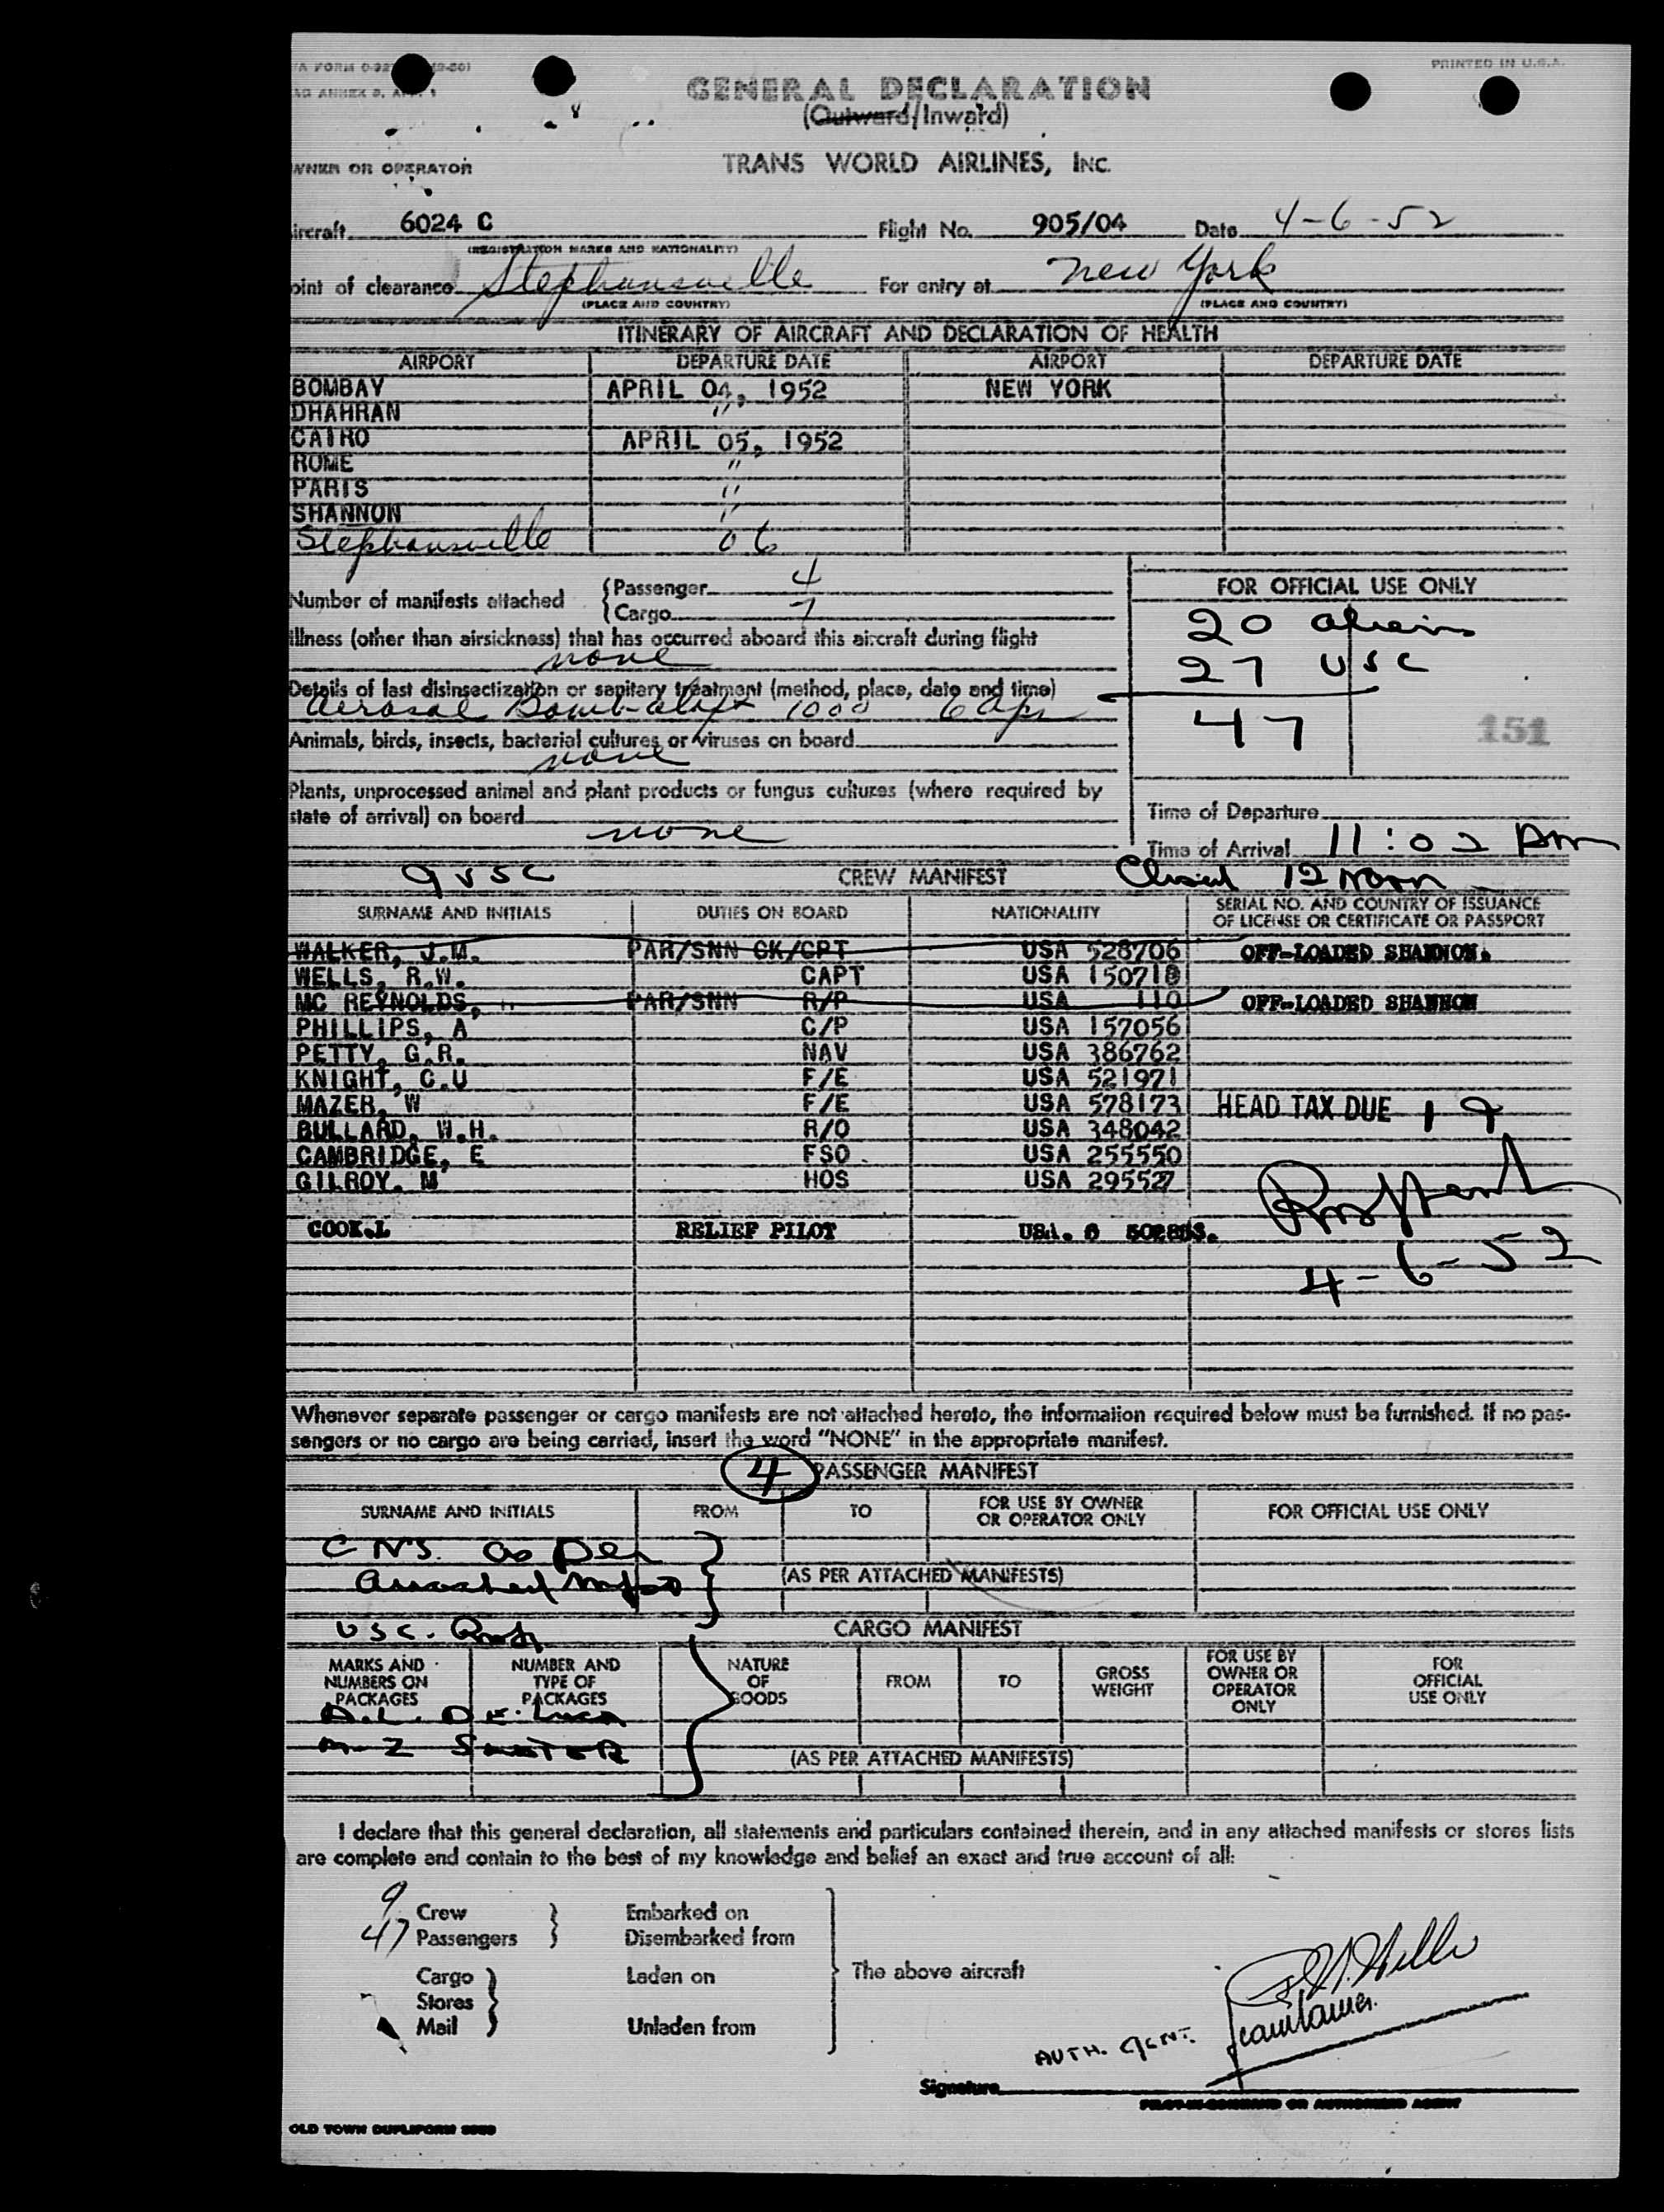 PRINTED IN U.S.A.
GENERAL DECLARATION
(Outward/Inward)
WNER OR OPERATOR TRANS WORLD AIRLINES, INC.
ircraft 6024 C Flight No. 905/04 Date 4-6-52
(REGISTRATION MARKS AND NATIONALITY)
oint of clearance Stephansville For entry at New York
(PLACE AND COUNTRY) (PLACE AND COUNTRY)
ITINERARY OF AIRCRAFT AND DECLARATION OF HEALTH
AIRPORT DEPARTURE DATE AIRPORT DEPARTURE DATE
BOMBAY APRIL 04, 1952 NEW YORK
DHAHRAN "
CAIRO APRIL 05, 1952
ROME "
PARIS "
SHANNON "
Stephansville 06
Number of manifests attached { Passenger 4
{ Cargo 7
FOR OFFICIAL USE ONLY
20 aliens
27 USC
47
151
Illness (other than airsickness) that has occurred aboard this aircraft during flight
none
Details of last disinsectization or sanitary treatment (method, place, date and time)
Aerosol Bomb 1000 6 Apr
Animals, birds, insects, bacterial cultures or viruses on board
none
Plants, unprocessed animal and plant products or fungus cultures (where required by
state of arrival) on board
none
Time of Departure
Time of Arrival 11:02 AM
9 USC CREW MANIFEST Closed 12 Noon
SURNAME AND INITIALS DUTIES ON BOARD NATIONALITY SERIAL NO. AND COUNTRY OF ISSUANCE
OF LICENSE OR CERTIFICATE OR PASSPORT
WALKER, J.M. PAR/SNN CK/CPT USA 528706 OFF-LOADED SHANNON.
WELLS, R.W. CAPT USA 150718
MC REYNOLDS, PAR/SNN R/P USA 110 OFF-LOADED SHANNON
PHILLIPS, A C/P USA 157056
PETTY, G.R. NAV USA 386762
KNIGHT, C.U F/E USA 521971
MAZER, W F/E USA 578173 HEAD TAX DUE 19
BULLARD, W.H. R/O USA 348042
CAMBRIDGE, E FSO USA 255550
GILROY. M HOS USA 295527
COOK.L RELIEF PILOT USA.
4-6-52
Whenever separate passenger or cargo manifests are not attached hereto, the information required below must be furnished. If no pas-
sengers or no cargo are being carried, insert the word "NONE" in the appropriate manifest.
4 PASSENGER MANIFEST
SURNAME AND INITIALS FROM TO FOR USE BY OWNER
OR OPERATOR ONLY FOR OFFICIAL USE ONLY
as per
(AS PER ATTACHED MANIFESTS)
USC. CARGO MANIFEST
MARKS AND
NUMBERS ON
PACKAGES
NUMBER AND
TYPE OF
PACKAGES
NATURE
OF
GOODS
FROM
TO
GROSS
WEIGHT
FOR USE BY
OWNER OR
OPERATOR
ONLY
FOR
OFFICIAL
USE ONLY
A.L. DE. Luca
(AS PER ATTACHED MANIFESTS)
I declare that this general declaration, all statements and particulars contained therein, and in any attached manifests or stores lists
are complete and contain to the best of my knowledge and belief an exact and true account of all:
9 Crew Embarked on
47 Passengers Disembarked from
Cargo Laden on The above aircraft
Stores
Mail Unladen from
AUTH. AGENT.
Signature
PILOT-IN-COMMAND OR AUTHORIZED AGENT
OLD TOWN DUPLIFORM